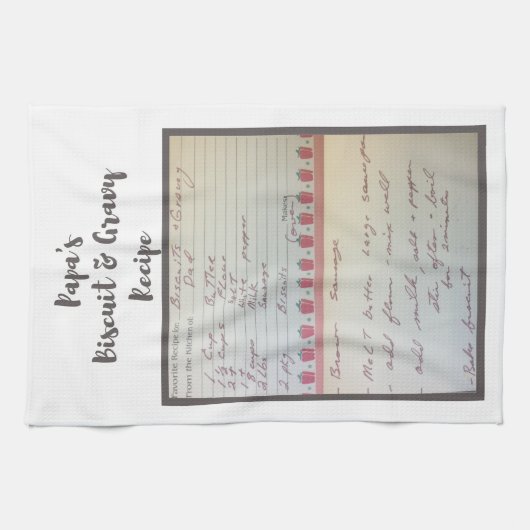 Papa's
Biscuit & Gravy
Recipe
Favorite Recipe for: Biscuits & Gravy
From the Kitchen of: Dad
1 Cup Butter
1 ½ Cups Flour
2 t Salt
1 t White pepper
8 cups Milk
2 lbs Sausage
2 pkg Biscuits
Makes:
(over)
- Brown sausage
- Melt butter large saucepan
- add flour - mix well
- add milk, salt & pepper
stir often & boil
for 2 minutes
- Bake biscuit